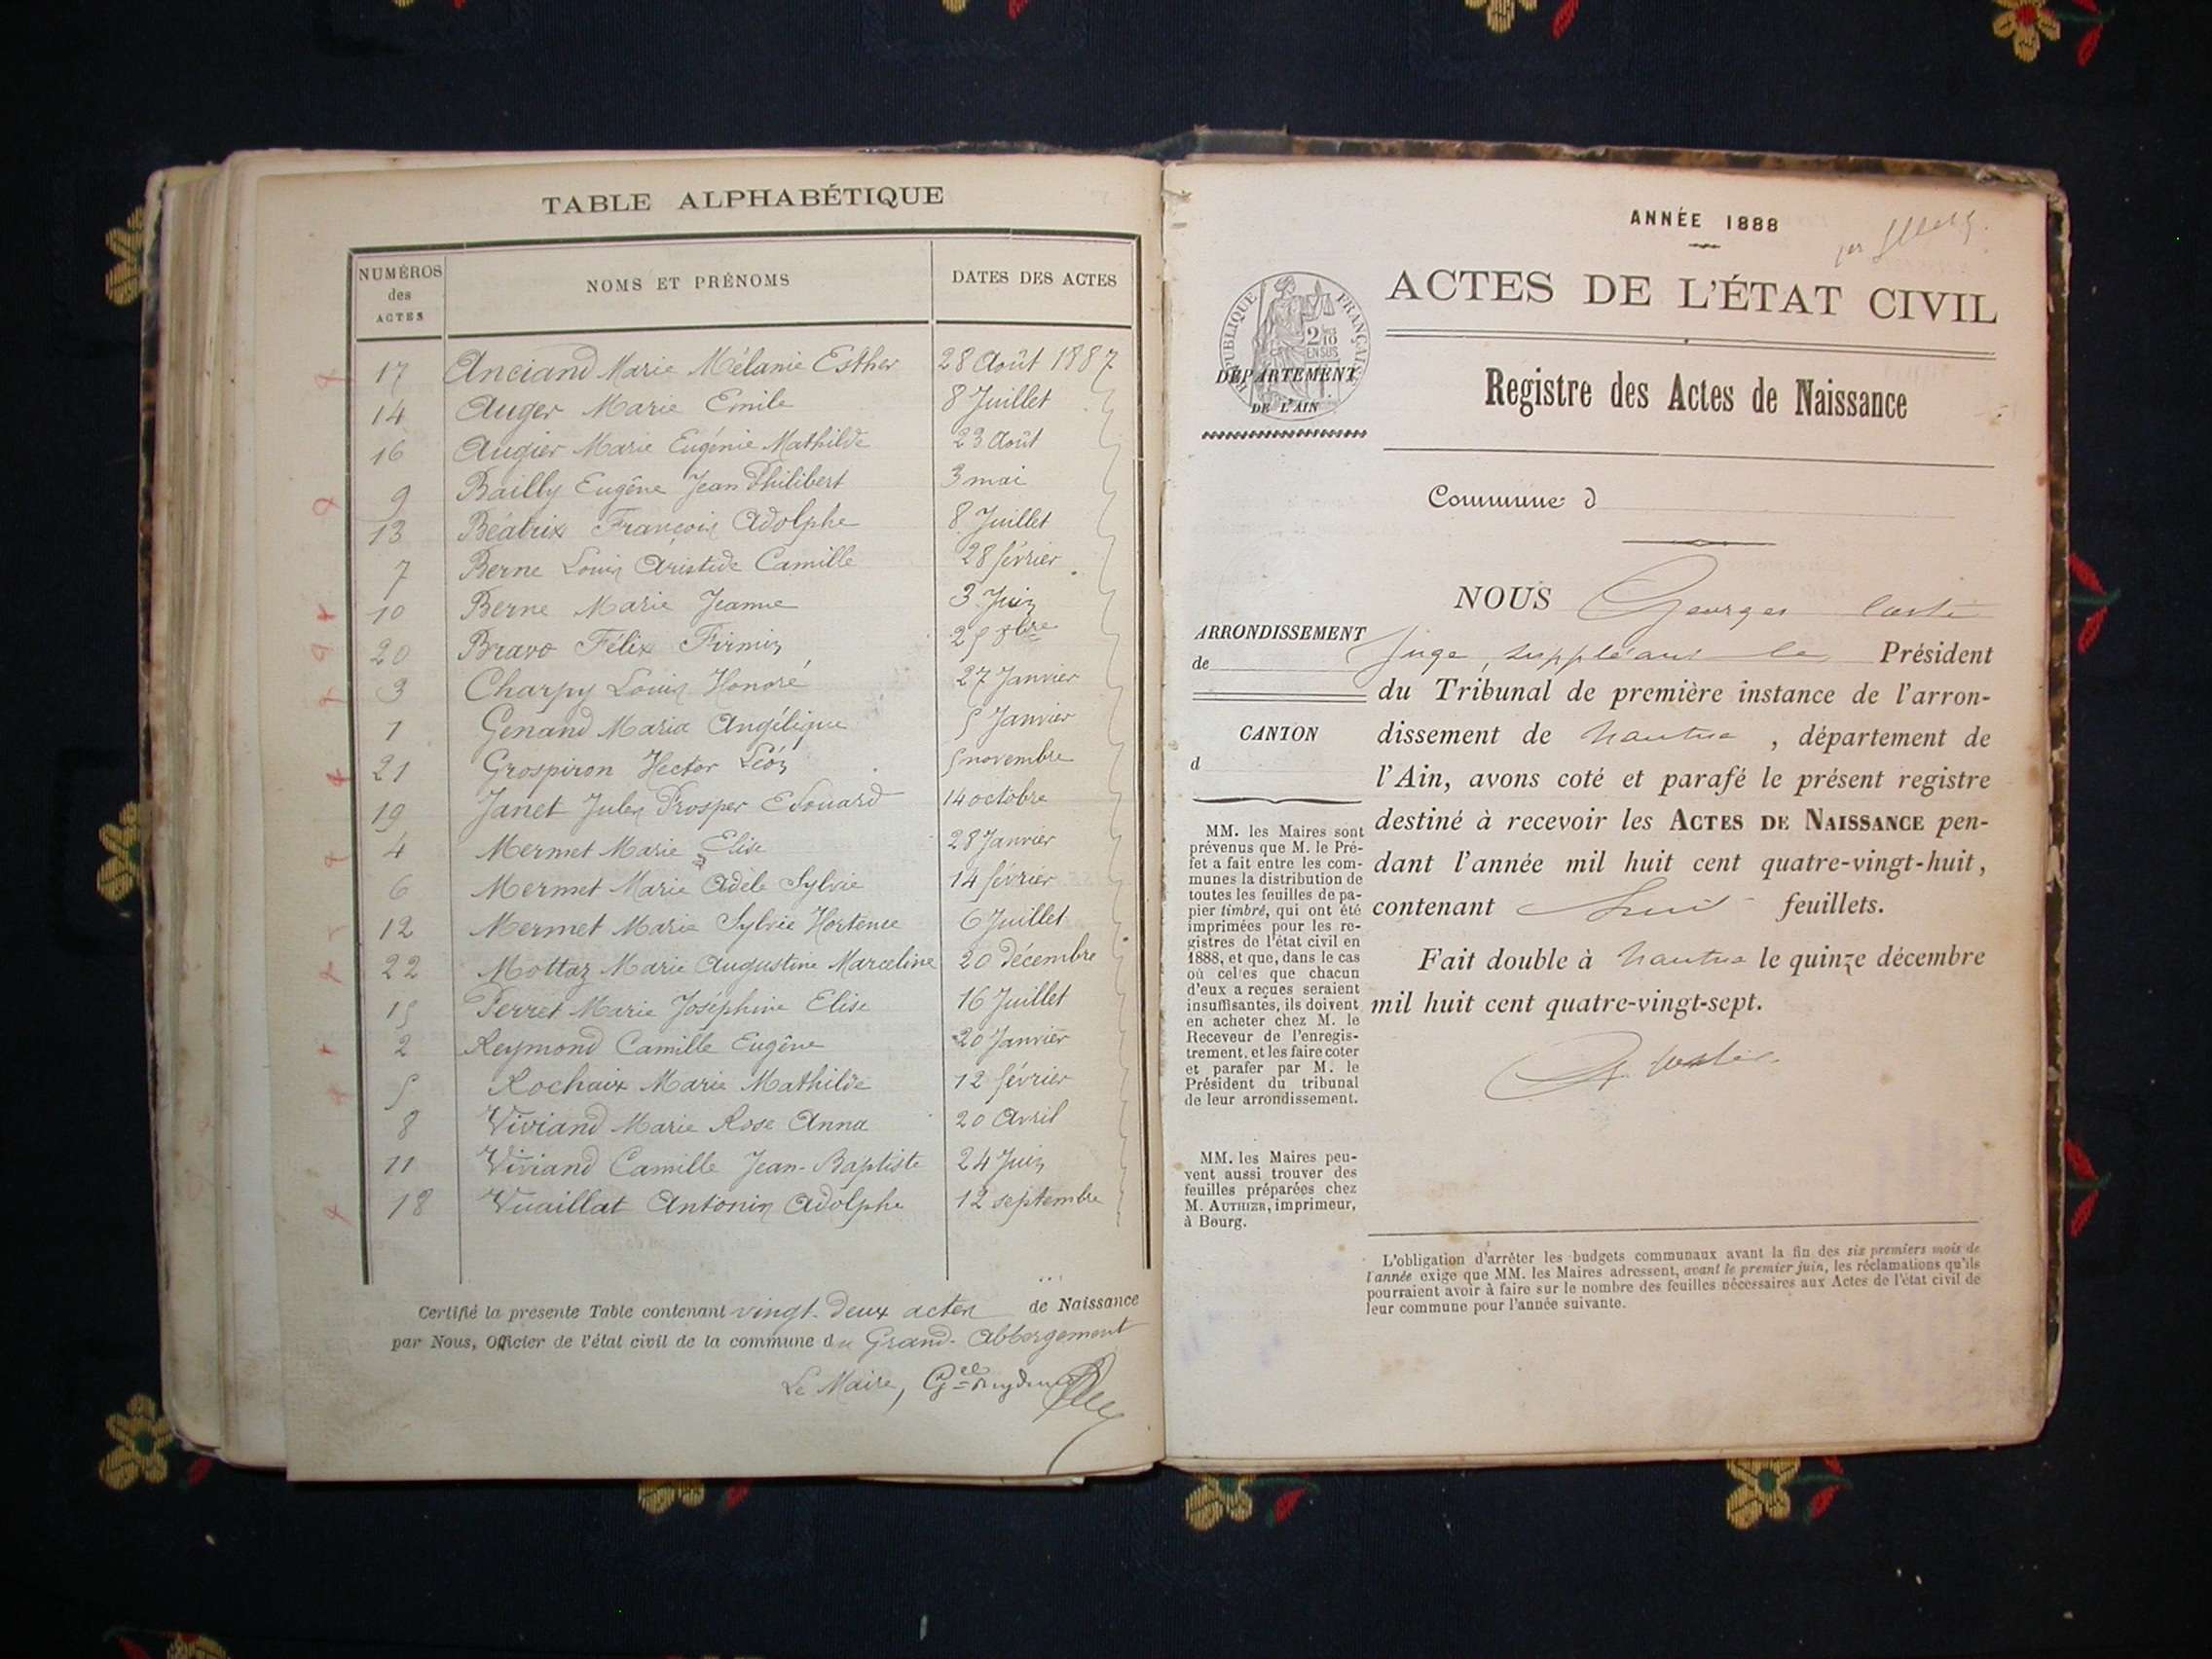 TABLE ALPHABÉTIQUE
NUMÉROS
des
ACTES
NOMS ET PRÉNOMS
DATES DES ACTES
17 Anciand Marie Mélanie Esther 28 Août 1887
14 Auger Marie Emile 8 Juillet
16 Augier Marie Eugénie Mathilde 23 Août
9 Bailly Eugène Jean Philibert 3 mai
13 Béatrix François Adolphe 8 Juillet
7 Berne Louis Aristide Camille 28 février
10 Berne Marie Jeanne 3 Juin
20 Bravo Félix Firmin 25 8bre
3 Charpy Louis Honoré 27 Janvier
1 Genand Maria Angélique 5 Janvier
21 Grospiron Hector Léon 5 novembre
19 Janet Jules Prosper Edouard 14 octobre
4 Mermet Marie Elise 28 Janvier
6 Mermet Marie Adèle Sylvie 14 février
12 Mermet Marie Sylvie Hortense 6 Juillet
22 Mottaz Marie Augustine Marceline 20 Décembre
15 Perret Marie Joséphine Elise 16 Juillet
2 Reymond Camille Eugène 20 Janvier
5 Rochaix Marie Mathilde 12 février
8 Viviand Marie Rose Anna 20 Avril
11 Viviand Camille Jean-Baptiste 24 Juin
18 Vuaillat Antonin Adolphe 12 septembre
Certifié la présente Table contenant vingt-deux actes de Naissance
par Nous, Officier de l'état civil de la commune du Grand-Abbergement
Le Maire,
ANNÉE 1888
ACTES DE L'ÉTAT CIVIL
RÉPUBLIQUE FRANÇAISE
2/10
EN SUS
DÉPARTEMENT
DE L'AIN
Registre des Actes de Naissance
Commune d
NOUS Georges
ARRONDISSEMENT
de
CANTON
d
Juge suppléant le Président
du Tribunal de première instance de l'arron-
dissement de Nantua, département de
l'Ain, avons coté et parafé le présent registre
destiné à recevoir les ACTES DE NAISSANCE pen-
dant l'année mil huit cent quatre-vingt-huit,
contenant huit feuillets.
Fait double à Nantua le quinze décembre
mil huit cent quatre-vingt-sept.
MM. les Maires sont
prévenus que M. le Pré-
fet a fait entre les com-
munes la distribution de
toutes les feuilles de pa-
pier timbré, qui ont été
imprimées pour les re-
gistres de l'état civil en
1888, et que, dans le cas
où celles que chacun
d'eux a reçues seraient
insuffisantes, ils doivent
en acheter chez M. le
Receveur de l'enregis-
trement, et les faire coter
et parafer par M. le
Président du tribunal
de leur arrondissement.
MM. les Maires peu-
vent aussi trouver des
feuilles préparées chez
M. AUTHIER, imprimeur,
à Bourg.
L'obligation d'arrêter les budgets communaux avant la fin des six premiers mois de
l'année exige que MM. les Maires adressent, avant le premier juin, les réclamations qu'ils
pourraient avoir à faire sur le nombre des feuilles nécessaires aux Actes de l'état civil de
leur commune pour l'année suivante.